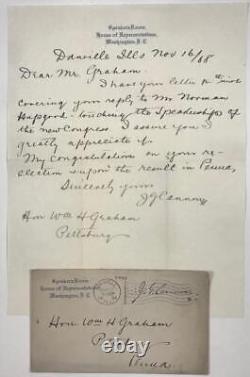 Speaker's Room,
House of Representatives,
Washington, D.C.
Danville Ills Nov 16/08
Dear Mr. Graham.
I have your letter
covering your reply to Mr Norman
Hapgood - touching the Speakership of
the new Congress. I assure you I
greatly appreciate it.
My congratulations on your re-
election & upon the result in Penna,
Sincerely yours
J G Cannon
Hon Wm H Graham
Pittsburg
Speaker's Room,
House of Representatives,
Washington, D.C.
J G Cannon
Hon Wm H Graham
Penna.